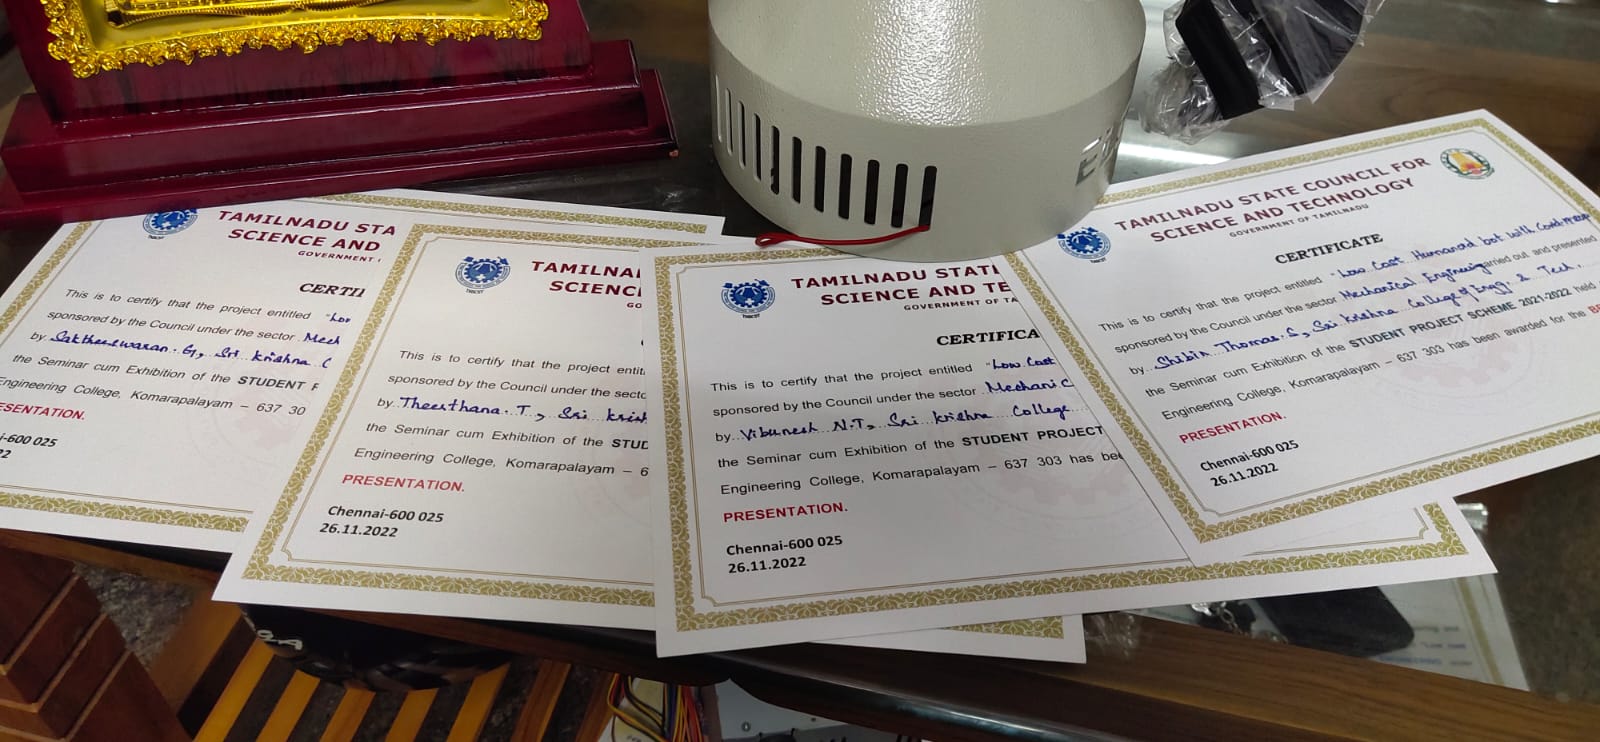 TAMILNADU STA
SCIENCE AND
GOVERNMENT
CERTI
This is to certify that the project entitled "Low
sponsored by the Council under the sector Mech
by Saktheeswaran. G, Sri Krishna C
the Seminar cum Exhibition of the STUDENT P
Engineering College, Komarapalayam – 637 30
ESENTATION.
-600 025
TAMILNA
SCIENC
GO
This is to certify that the project entit
sponsored by the Council under the secto
by Theerthana. T, Sri Krish
the Seminar cum Exhibition of the STUD
Engineering College, Komarapalayam – 6
PRESENTATION.
Chennai-600 025
26.11.2022
TAMILNADU STATE
SCIENCE AND TE
GOVERNMENT OF TA
CERTIFICA
This is to certify that the project entitled "Low Cost
sponsored by the Council under the sector Mechanic
by Vibunesh N.T, Sri Krishna College
the Seminar cum Exhibition of the STUDENT PROJECT
Engineering College, Komarapalayam – 637 303 has bee
PRESENTATION.
Chennai-600 025
26.11.2022
TAMILNADU STATE COUNCIL FOR
SCIENCE AND TECHNOLOGY
GOVERNMENT OF TAMILNADU
CERTIFICATE
This is to certify that the project entitled "Low Cost Humanoid bot with
sponsored by the Council under the sector Mechanical Engineering carried out and presented
by Shibin Thomas. S, Sri Krishna College of Engg. & Tech.
the Seminar cum Exhibition of the STUDENT PROJECT SCHEME 2021-2022 held
Engineering College, Komarapalayam – 637 303 has been awarded for the BE
PRESENTATION.
Chennai-600 025
26.11.2022